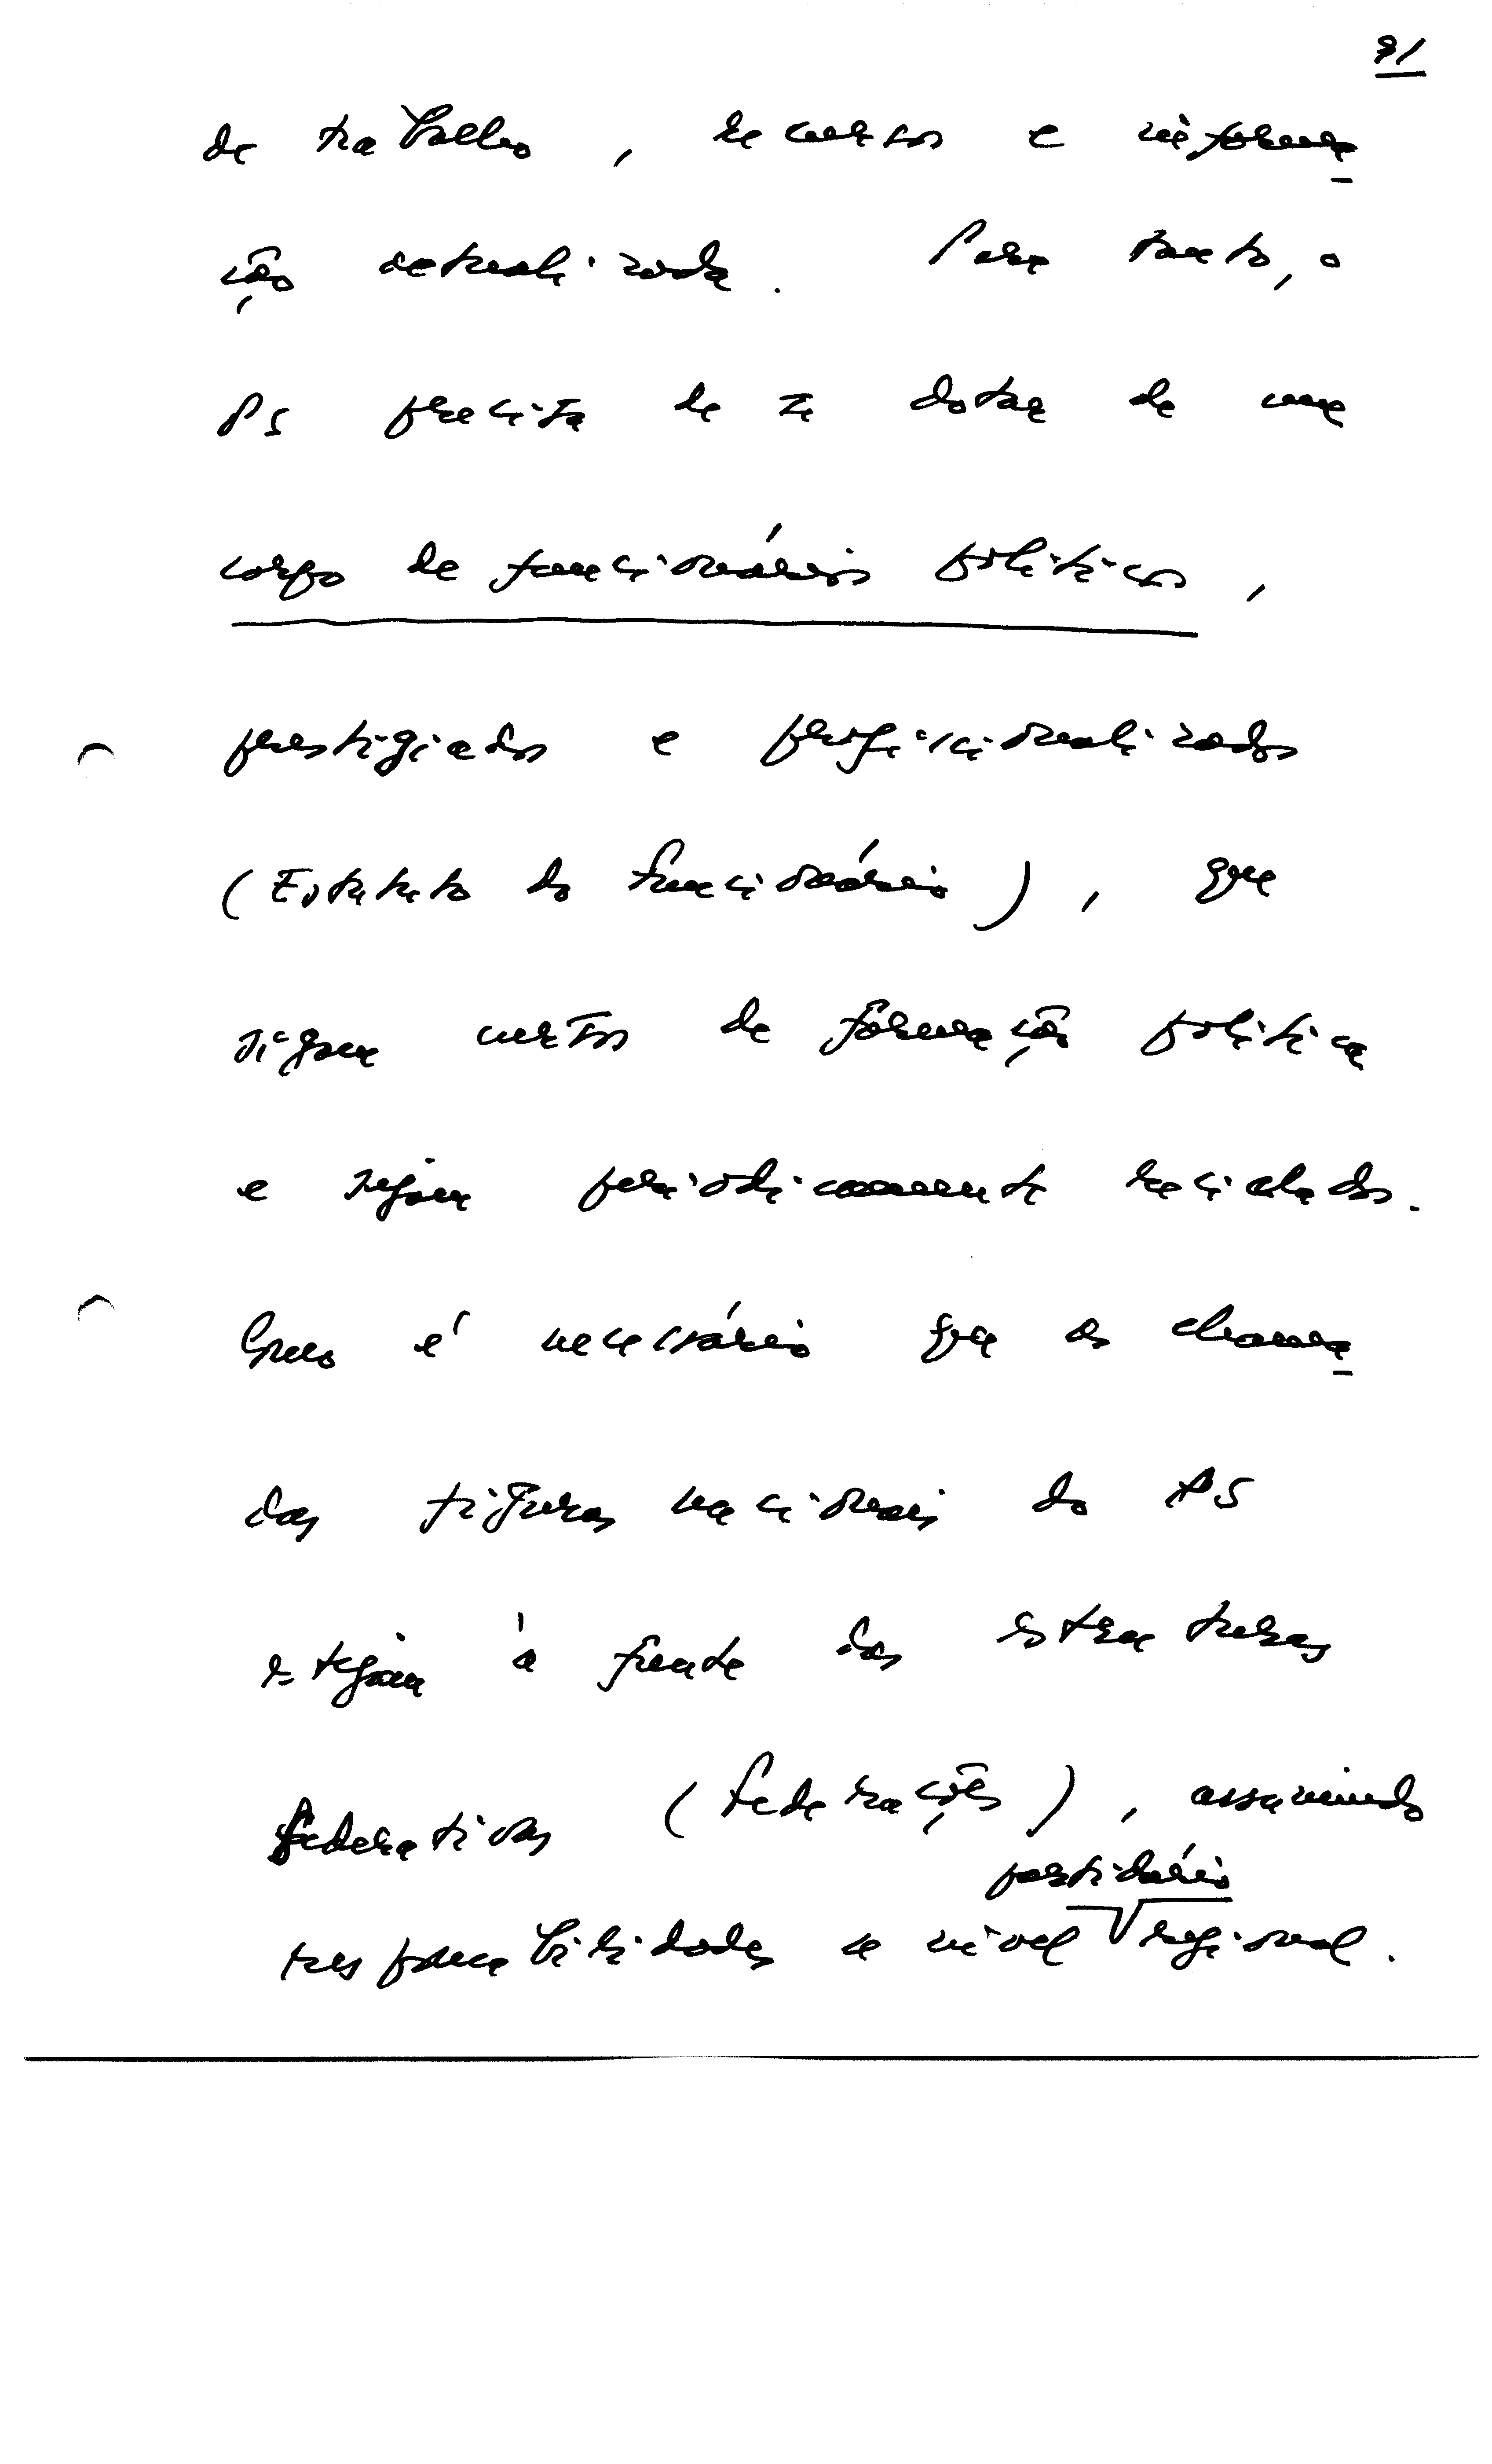 81
de trabalho, recursos e informa
ção actualizada. Para tanto, o
PS precisa de se dotar de um
corpo de funcionários políticos,
prestigiados e profissionalizados
(Estatuto do funcionário), que
sigam cursos de formação política
e sejam periodicamente reciclados.
Como é necessário que as chama
das figuras nacionais do PS
estejam à frente das estruturas
federativas (Federações), assumindo
partidário
responsabilidades a nível regional.